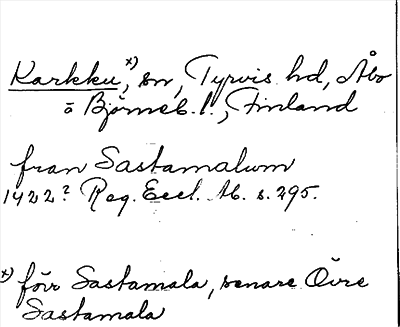 Karkku,ˣ⁾ sn, Tyrvis hd, Åbo
o Björneb. l., Finland
fran Sastamalum
1422? Reg. Eccl. Ab. s. 295.
x) förr Sastamala, senare Övre
Sastamala